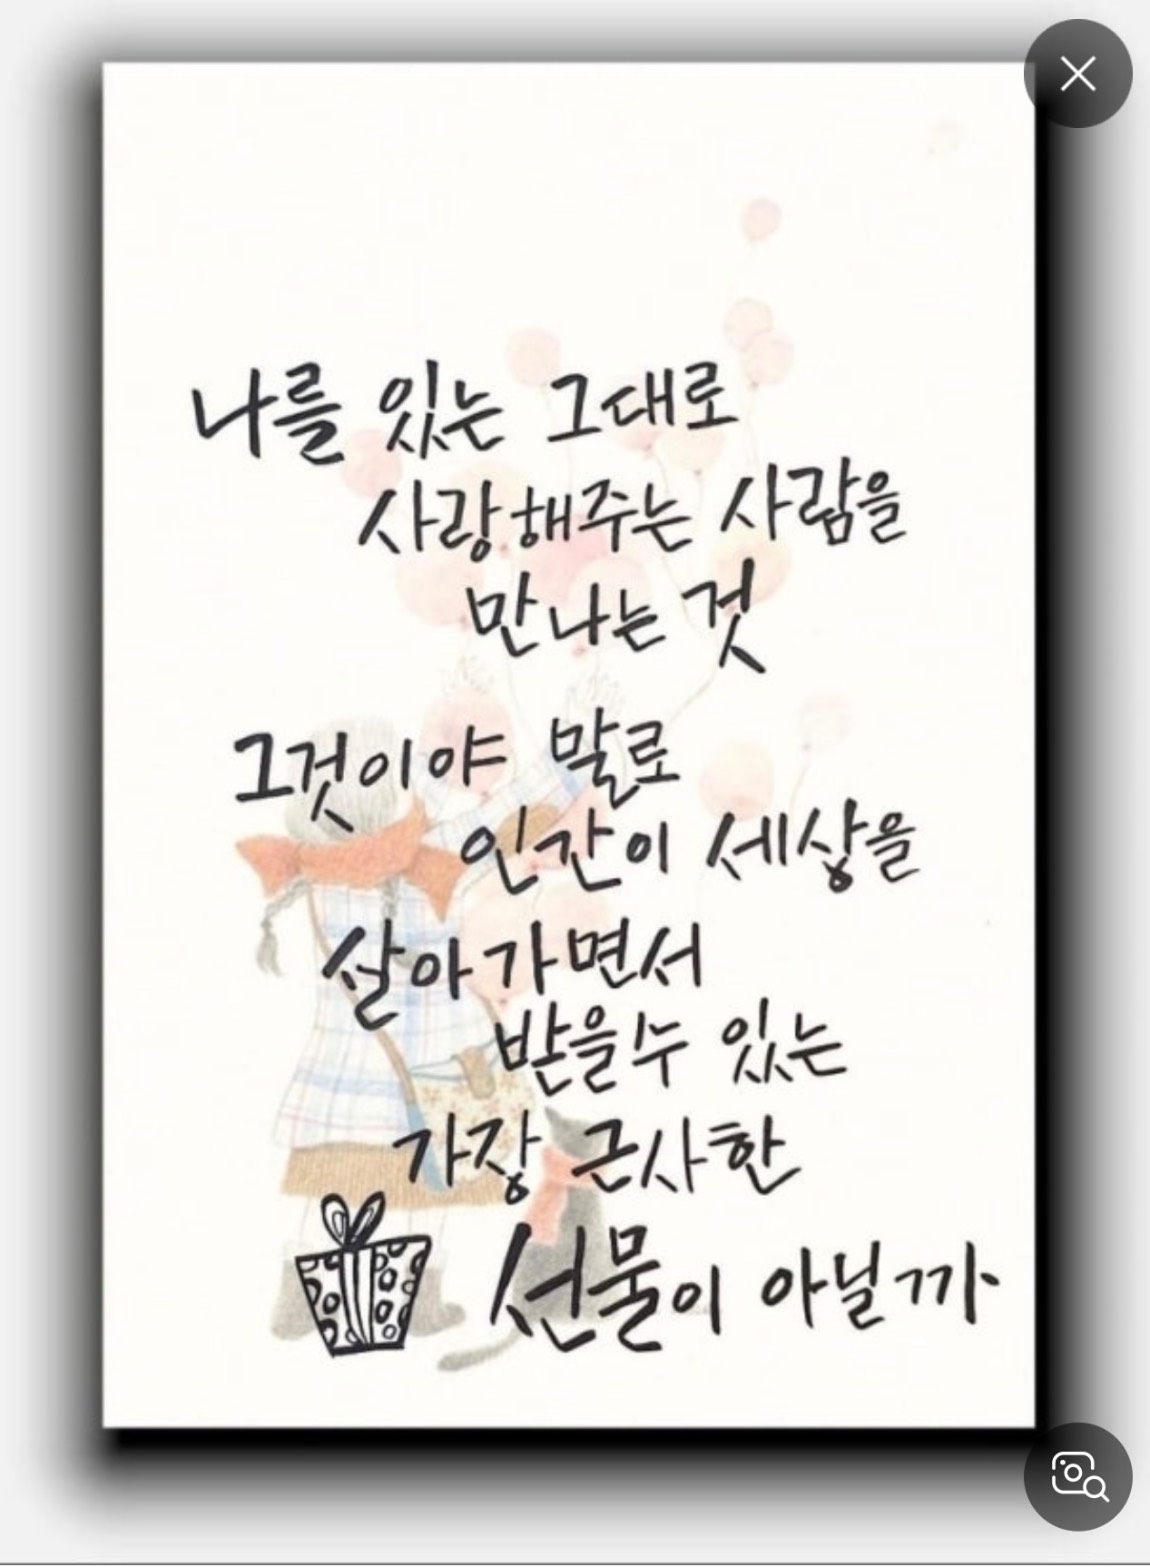 나를 있는 그대로
사랑해주는 사람을
만나는 것
그것이야 말로
인간이 세상을
살아가면서
받을수 있는
가장 근사한
선물이 아닐까